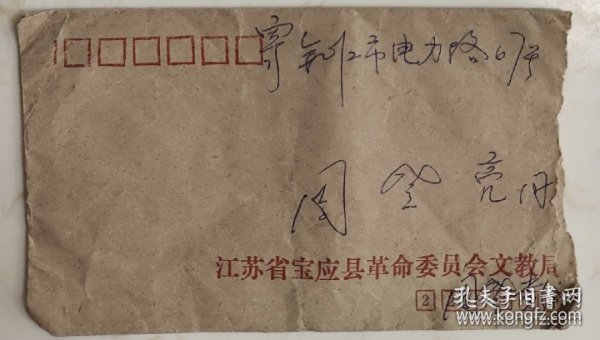 寄镇江市电力路67号
周 登 亮 収
江苏省宝应县革命委员会文教局
2
孔夫子旧书网
www.kongfz.com